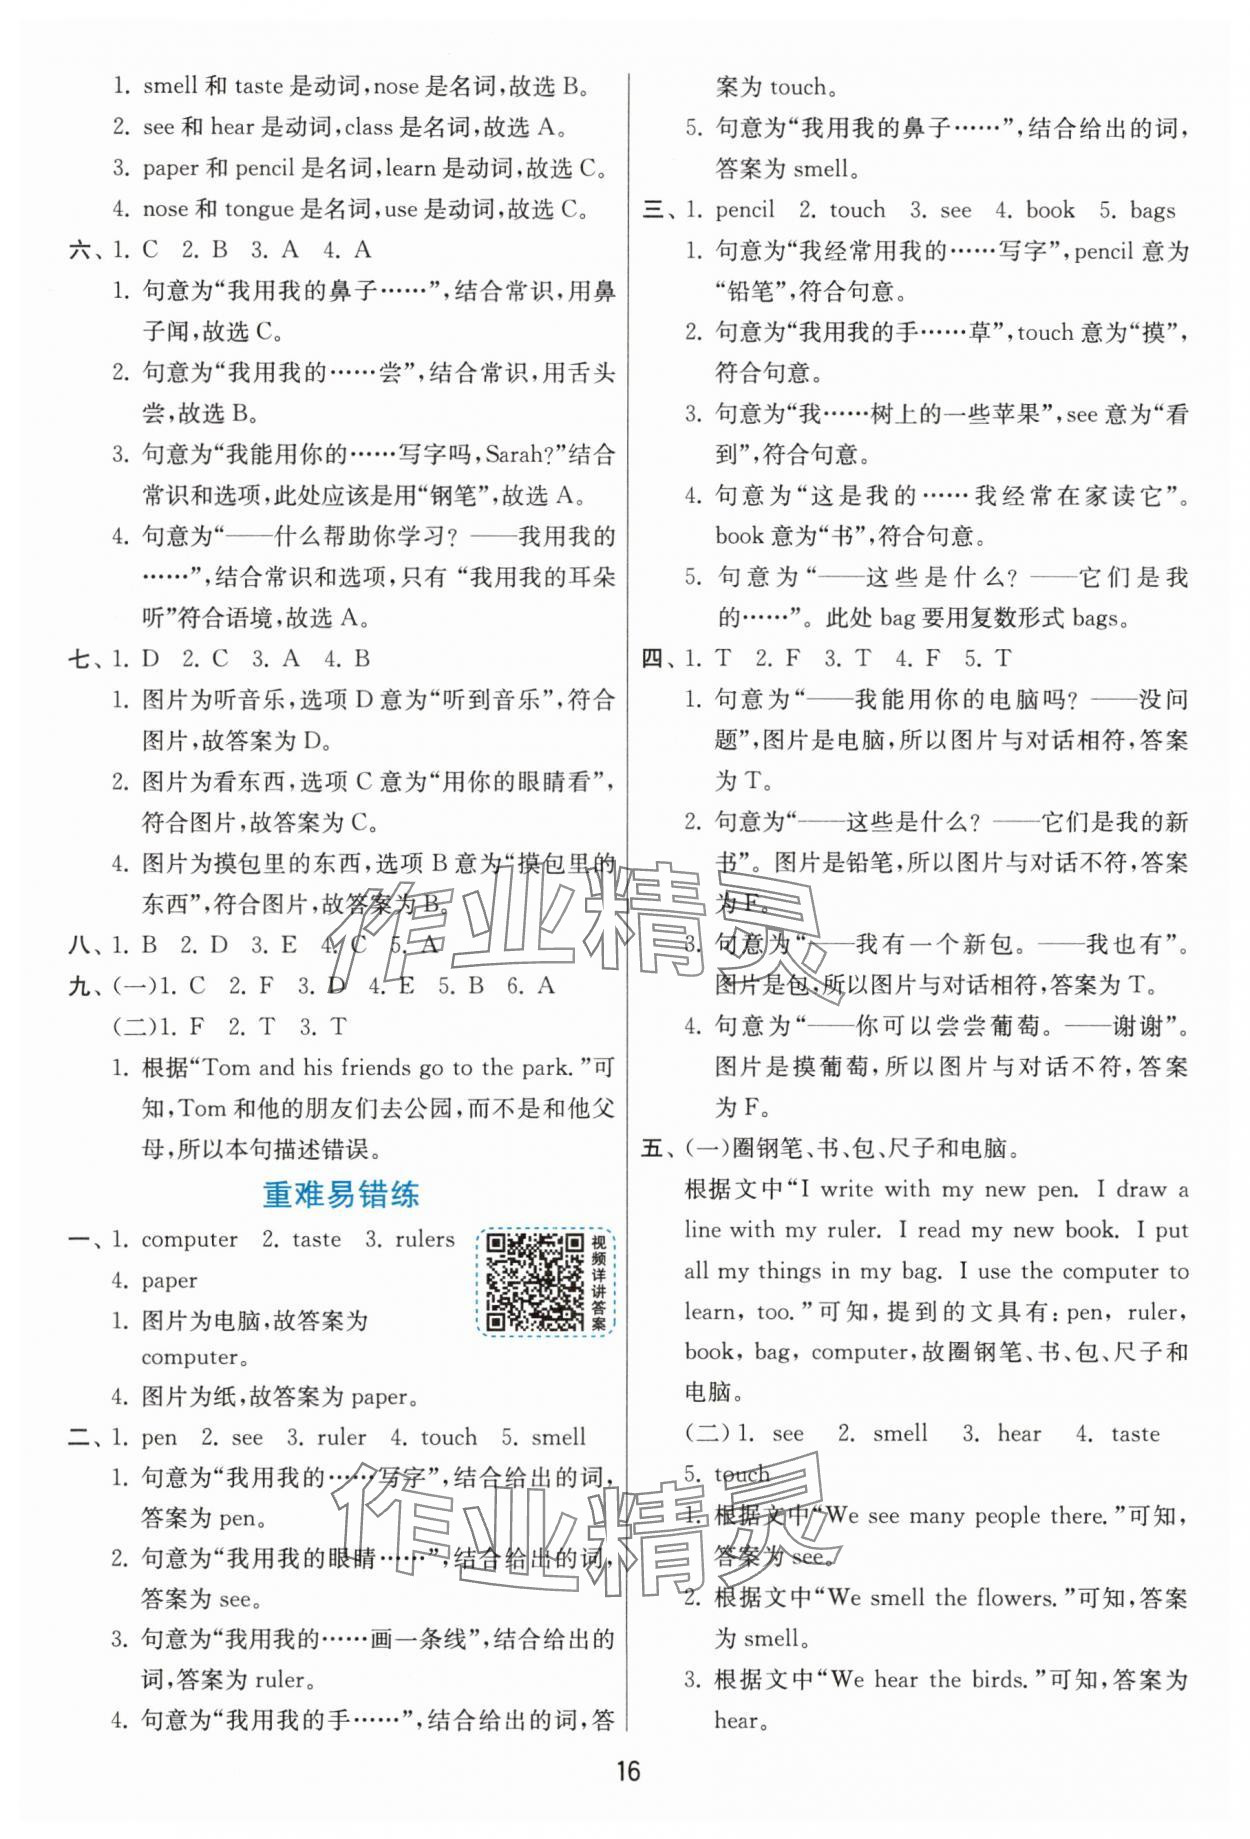 1. smell 和 taste 是动词,nose 是名词,故选 B。
2. see 和 hear 是动词,class 是名词,故选 A。
3. paper 和 pencil 是名词,learn 是动词,故选 C。
4. nose 和 tongue 是名词,use 是动词,故选 C。
六、1. C 2. B 3. A 4. A
1. 句意为“我用我的鼻子……”,结合常识,用鼻
子闻,故选 C。
2. 句意为“我用我的……尝”,结合常识,用舌头
尝,故选 B。
3. 句意为“我能用你的……写字吗,Sarah?”结合
常识和选项,此处应该是用“钢笔”,故选 A。
4. 句意为“——什么帮助你学习? ——我用我的
……”,结合常识和选项,只有 “我用我的耳朵
听”符合语境,故选 A。
七、1. D 2. C 3. A 4. B
1. 图片为听音乐,选项 D 意为“听到音乐”,符合
图片,故答案为 D。
2. 图片为看东西,选项 C 意为“用你的眼睛看”,
符合图片,故答案为 C。
4. 图片为摸包里的东西,选项 B 意为“摸包里的
东西”,符合图片,故答案为 B。
八、1. B 2. D 3. E 4. C 5. A
九、(一)1. C 2. F 3. D 4. E 5. B 6. A
(二)1. F 2. T 3. T
1. 根据“Tom and his friends go to the park. ”可
知,Tom 和他的朋友们去公园,而不是和他父
母,所以本句描述错误。
重难易错练
一、1. computer 2. taste 3. rulers
4. paper
1. 图片为电脑,故答案为
computer。
视频详讲答案
4. 图片为纸,故答案为 paper。
二、1. pen 2. see 3. ruler 4. touch 5. smell
1. 句意为“我用我的……写字”,结合给出的词,
答案为 pen。
2. 句意为“我用我的眼睛……”,结合给出的词,
答案为 see。
3. 句意为“我用我的……画一条线”,结合给出的
词,答案为 ruler。
4. 句意为“我用我的手……”,结合给出的词,答
案为 touch。
5. 句意为“我用我的鼻子……”,结合给出的词,
答案为 smell。
三、1. pencil 2. touch 3. see 4. book 5. bags
1. 句意为“我经常用我的……写字”,pencil 意为
“铅笔”,符合句意。
2. 句意为“我用我的手……草”,touch 意为“摸”,
符合句意。
3. 句意为“我……树上的一些苹果”,see 意为“看
到”,符合句意。
4. 句意为“这是我的……我经常在家读它”。
book 意为“书”,符合句意。
5. 句意为“——这些是什么? ——它们是我
的……”。此处 bag 要用复数形式 bags。
四、1. T 2. F 3. T 4. F 5. T
1. 句意为“——我能用你的电脑吗? ——没问
题”,图片是电脑,所以图片与对话相符,答案
为 T。
2. 句意为“——这些是什么? ——它们是我的新
书”。图片是铅笔,所以图片与对话不符,答案
为 F。
3. 句意为“——我有一个新包。——我也有”。
图片是包,所以图片与对话相符,答案为 T。
4. 句意为“——你可以尝尝葡萄。——谢谢”。
图片是摸葡萄,所以图片与对话不符,答案
为 F。
五、(一)圈钢笔、书、包、尺子和电脑。
根据文中“I write with my new pen. I draw a
line with my ruler. I read my new book. I put
all my things in my bag. I use the computer to
learn, too. ”可知,提到的文具有:pen, ruler,
book, bag, computer,故圈钢笔、书、包、尺子和
电脑。
(二)1. see 2. smell 3. hear 4. taste
5. touch
1. 根据文中“We see many people there. ”可知,
答案为 see。
2. 根据文中“We smell the flowers. ”可知,答案
为 smell。
3. 根据文中“We hear the birds. ”可知,答案为
hear。
16
作业精灵
作业精灵